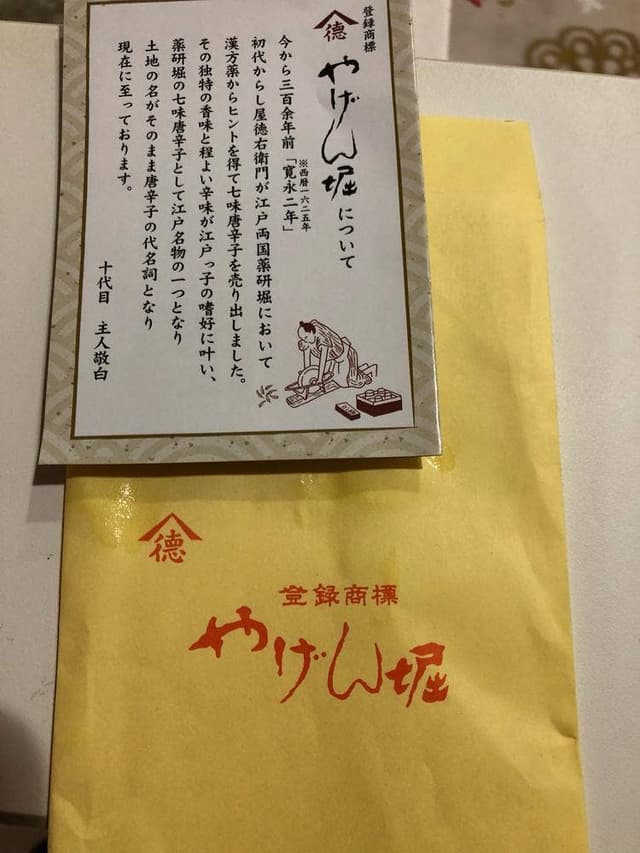 登録商標
徳
やげん堀について
今から三百余年前「寛永二年」
※西暦一六二五年
初代からし屋徳右衛門が江戸両国薬研堀において
漢方薬からヒントを得て七味唐辛子を売り出しました。
その独特の香味と程よい辛味が江戸っ子の嗜好に叶い、
薬研堀の七味唐辛子として江戸名物の一つとなり
土地の名がそのまま唐辛子の代名詞となり
現在に至っております。
十代目 主人敬白
徳
登録商標
やげん堀